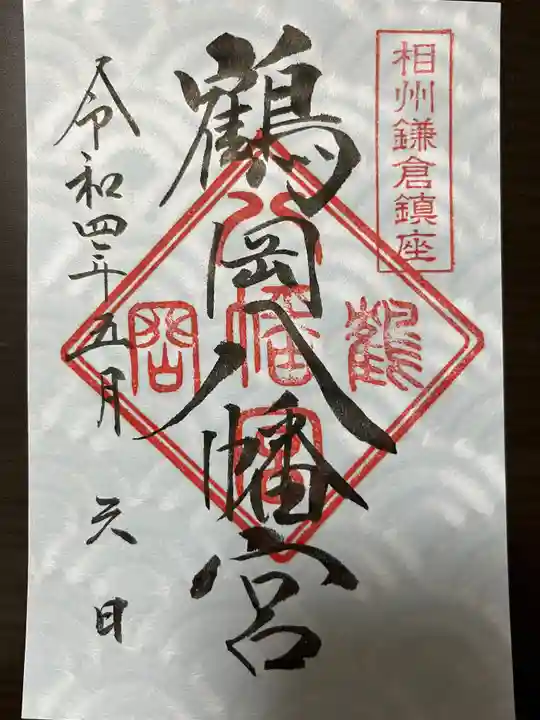 相州鎌倉鎮座
鶴岡八幡宮
鶴
八幡宮
岡
令和四年五月六日